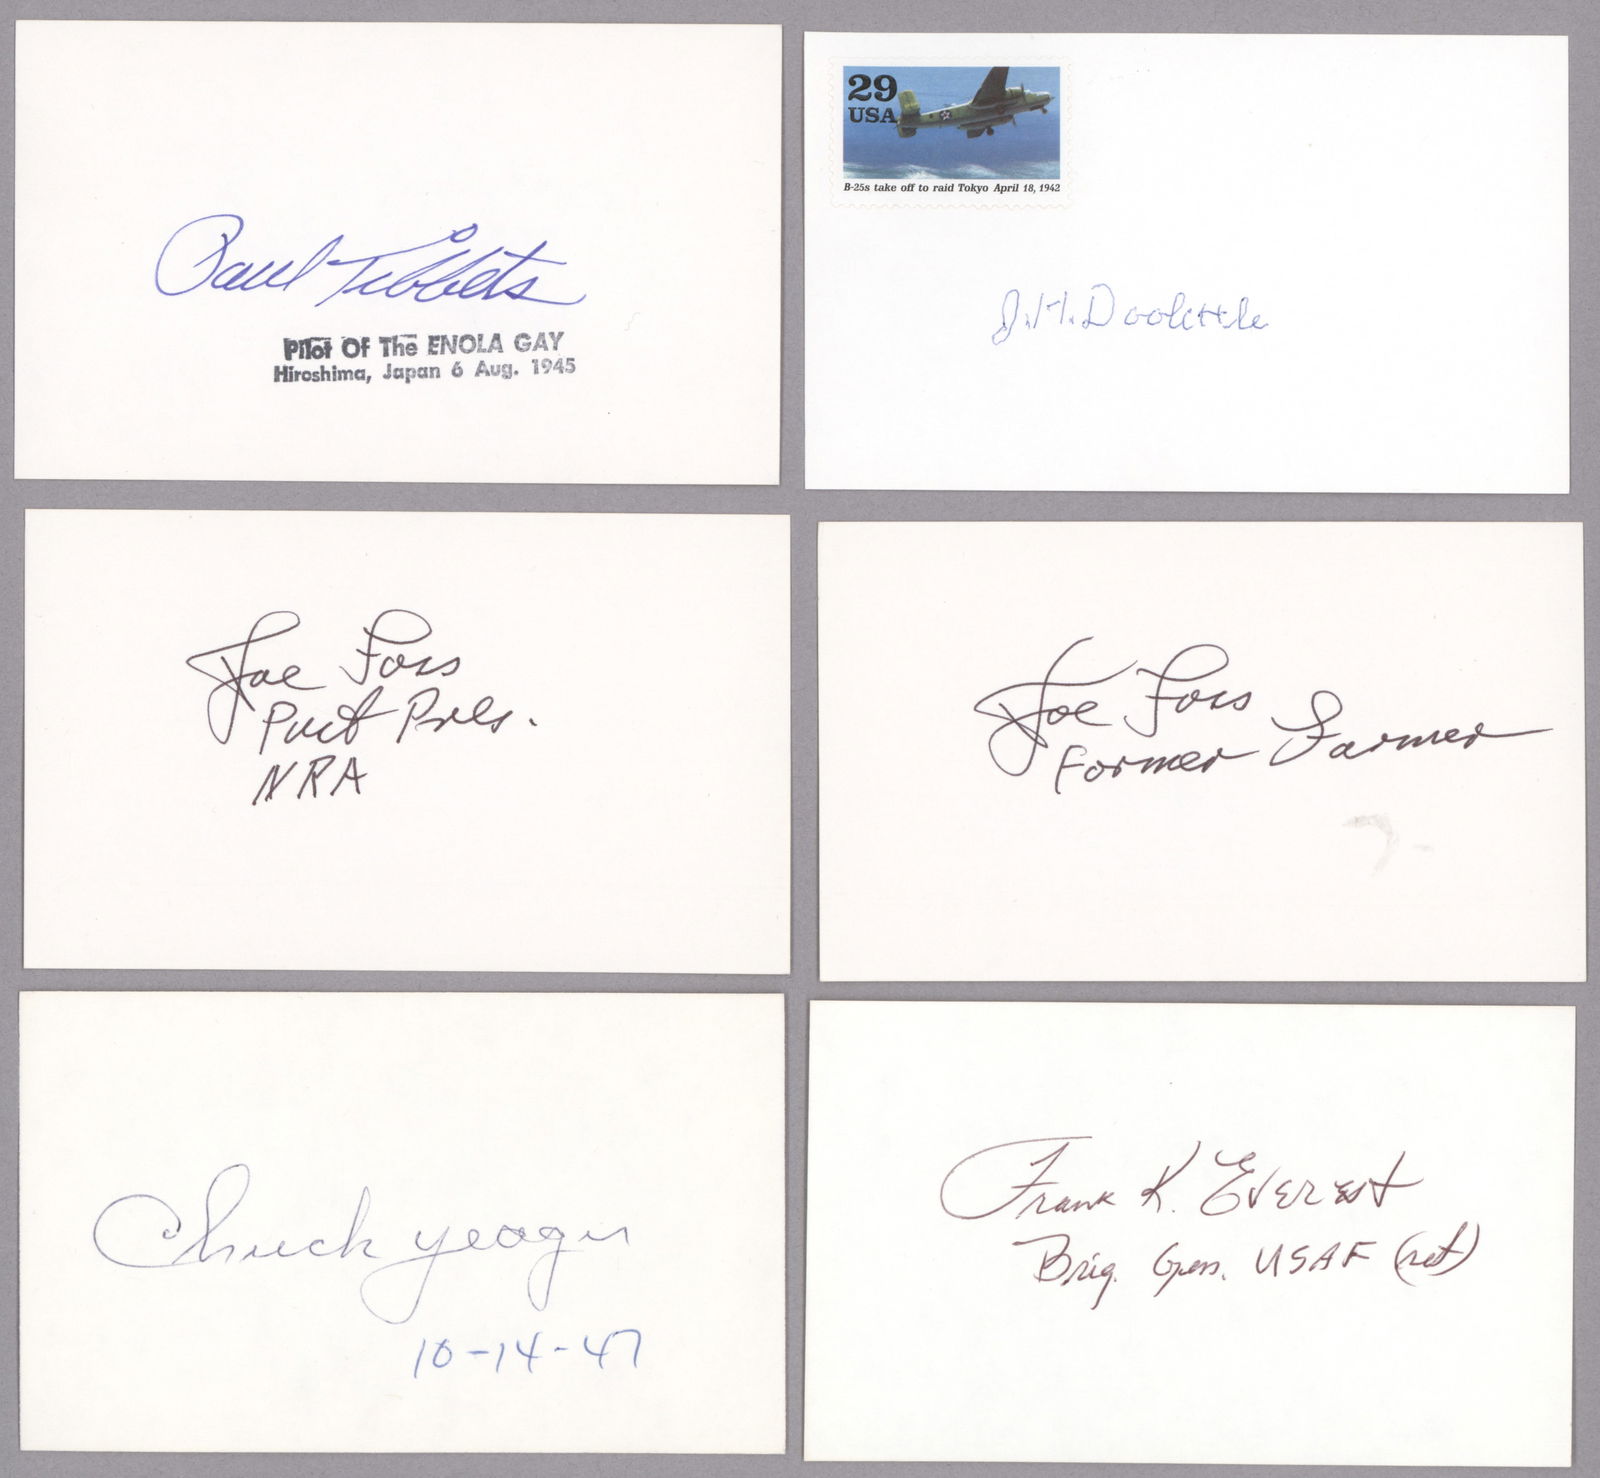 Paul Tibbets
Pilot Of The ENOLA GAY
Hiroshima, Japan 6 Aug. 1945
29
USA
B-25s take off to raid Tokyo April 18, 1942
J.H. Doolittle
Joe Foss
Past Pres.
NRA
Joe Foss
Former Farmer
Chuck Yeager
10-14-47
Frank K. Everest
Brig. Gen. USAF (ret)